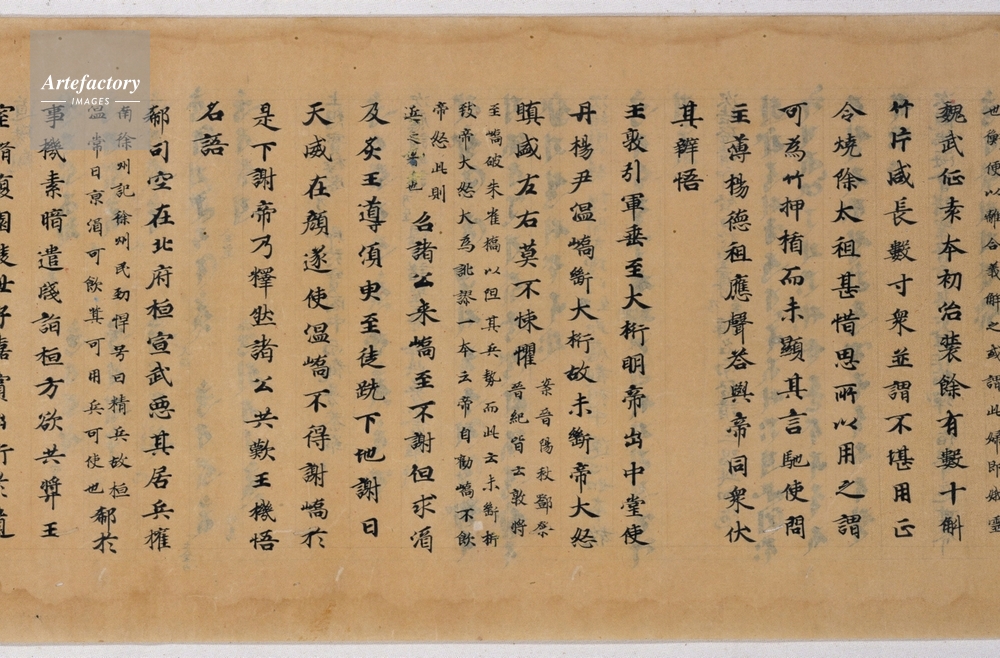 世幾便以離合義解之或謂此婦即娥靈
魏武征袁本初治裝餘有數十斛
竹片咸長數寸衆並謂不堪用正
令燒除太祖甚惜思所以用之謂
可為竹押楯而未顯其言馳使問
主薄楊德祖應聲荅與帝同衆伏
其辯悟
王敦引軍垂至大桁明帝出中堂使
丹楊尹温嶠斷大桁故未斷帝大怒
瞋咸左右莫不悚懼
案晉陽秋鄧粲
晉紀皆云敦將
至嶠破朱雀橋以阻其兵勢而此云未斷桁
致帝大怒大為訛謬一本云帝自勸嶠不飲
帝怒此則
近之者也
召諸公来嶠至不謝但求酒
及炙王導須臾至徒跣下地謝曰
天威在顔遂使温嶠不得謝嶠於
是下謝帝乃釋然諸公共歎王機悟
名語
郗司空在北府桓宣武惡其居兵權
南徐州記徐州民勁悍号曰精兵故桓
温常曰京酒可飲其可用兵可使也
郗於
事機素暗遣牋詣桓方欲共奬王
室脩復園陵世子嘉賓出行於道
Artefactory
IMAGES